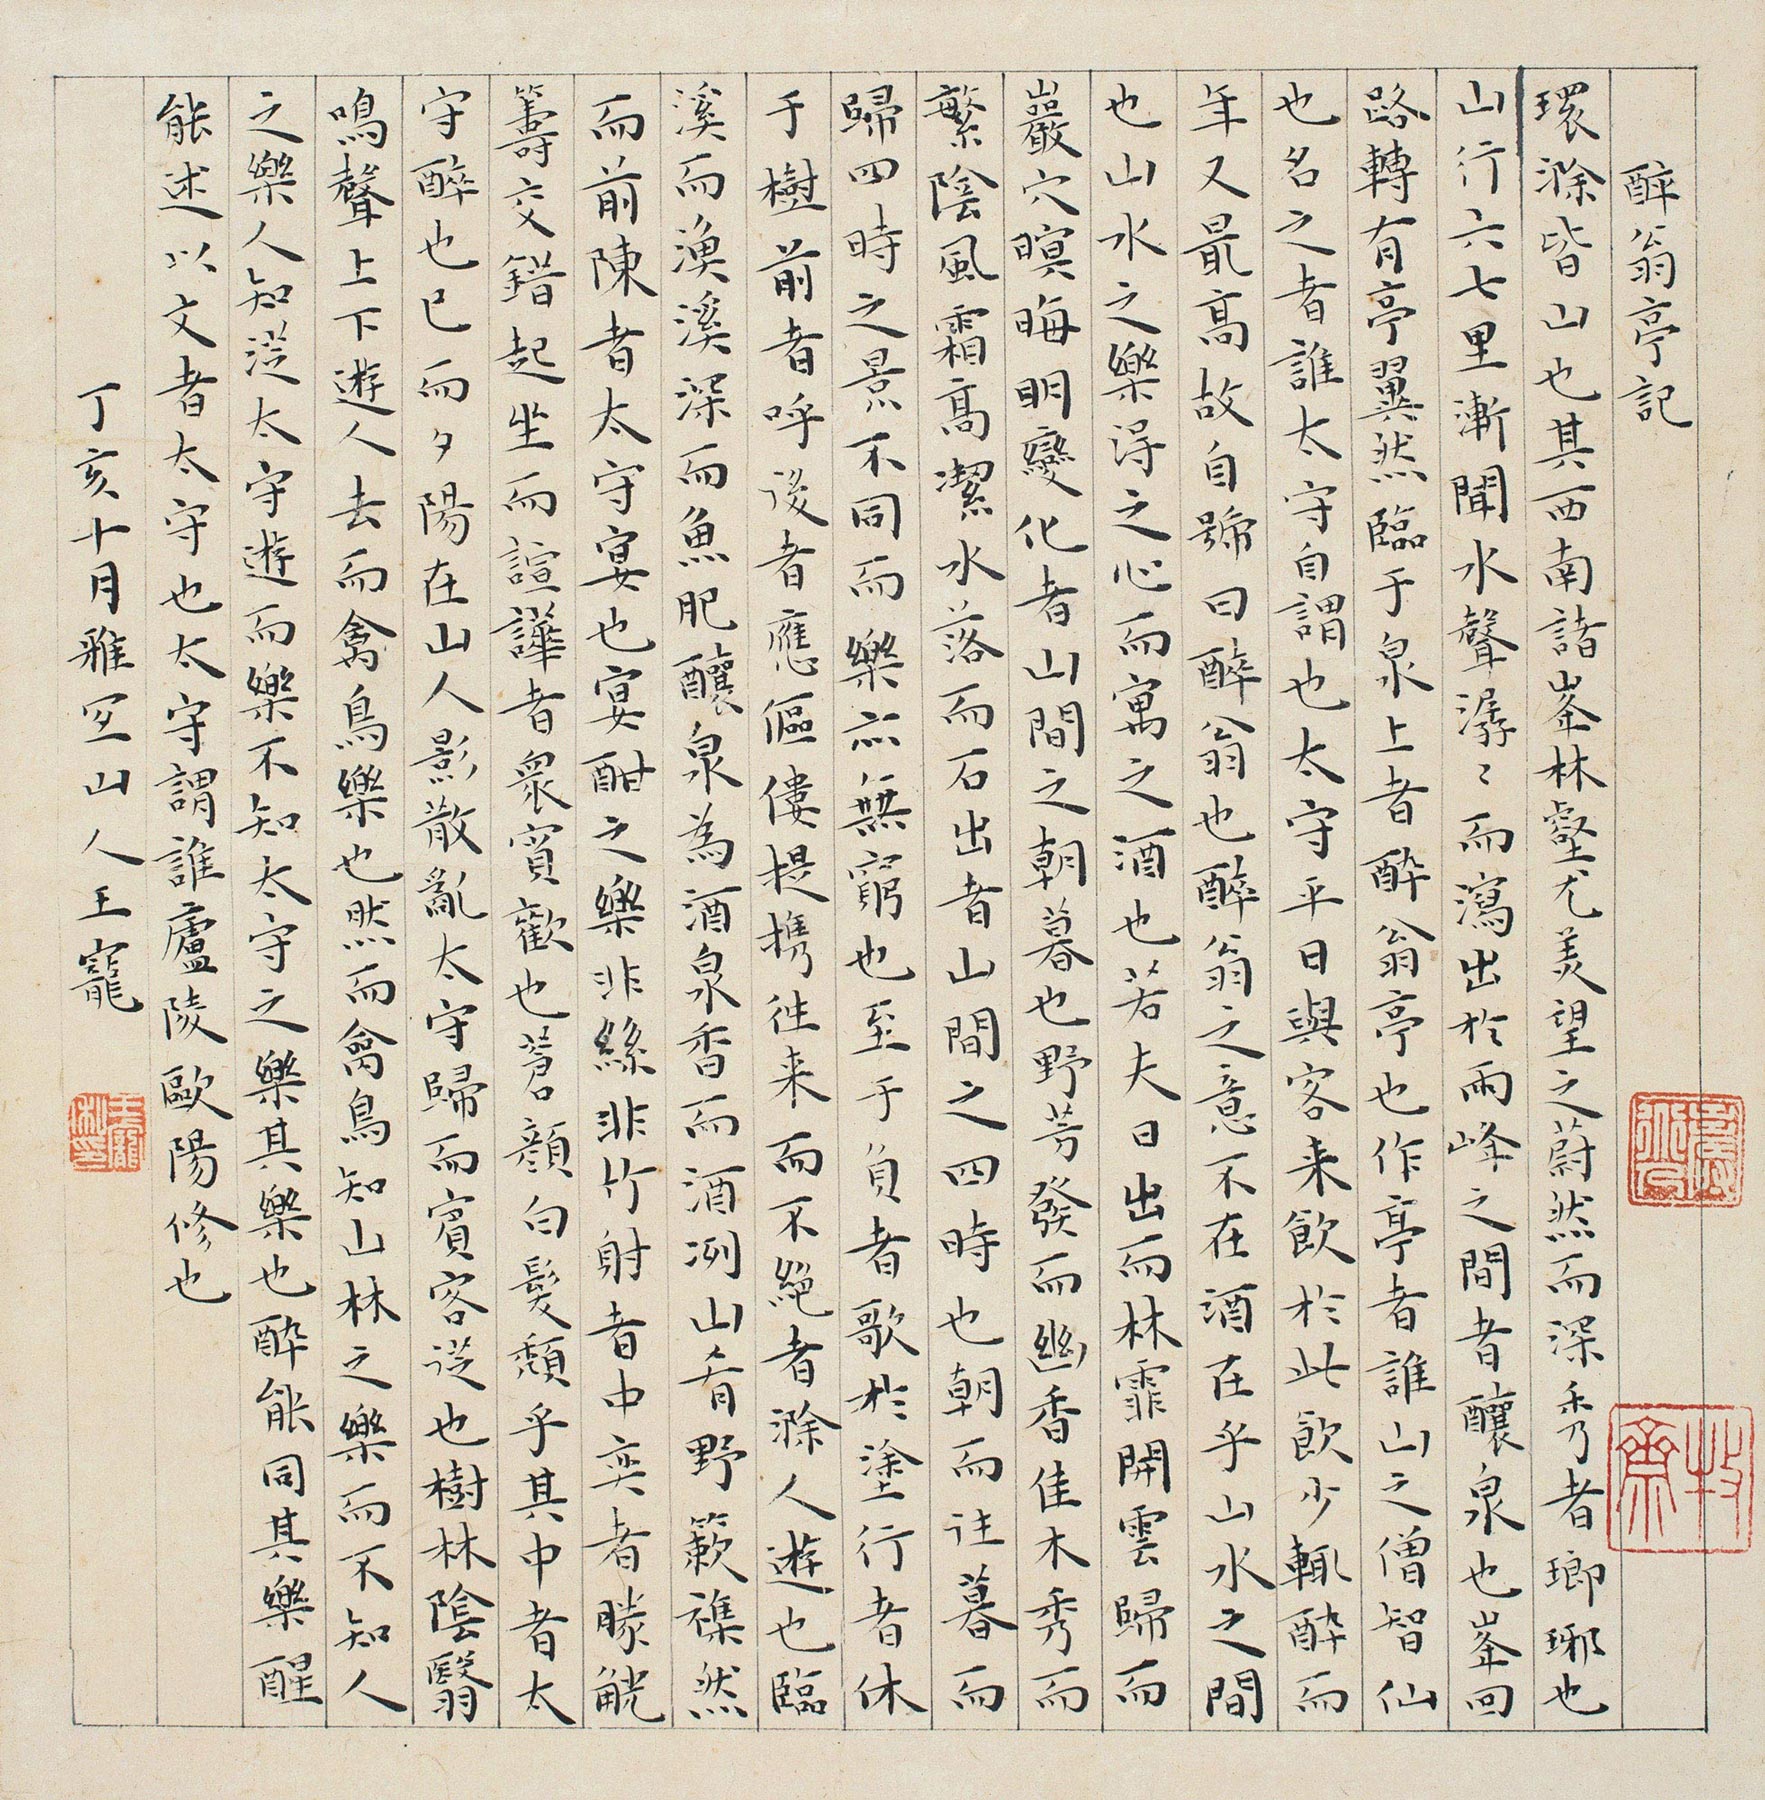 醉翁亭記
環滁皆山也其西南諸峯林壑尤美望之蔚然而深秀者瑯琊也
山行六七里漸聞水聲潺〻而瀉出於兩峰之間者釀泉也峯回
路轉有亭翼然臨于泉上者醉翁亭也作亭者誰山之僧智仙
也名之者誰太守自謂也太守平日與客来飲於此飲少輒醉而
年又最高故自號曰醉翁也醉翁之意不在酒在乎山水之間
也山水之樂得之心而寓之酒也若夫日出而林霏開雲歸而
巖穴暝晦明變化者山間之朝暮也野芳發而幽香佳木秀而
繁陰風霜高潔水落而石出者山間之四時也朝而往暮而
歸四時之景不同而樂亦無窮也至于負者歌於塗行者休
于樹前者呼後者應傴僂提携往来而不絕者滁人遊也臨
溪而漁溪深而魚肥釀泉為酒泉香而酒洌山肴野簌襍然
而前陳者太守宴也宴酣之樂非絲非竹射者中奕者勝觥
籌交錯起坐而諠譁者衆賓歡也蒼顔白髮頹乎其中者太
守醉也已而夕陽在山人影散亂太守歸而賓客從也樹林陰翳
鳴聲上下遊人去而禽鳥樂也然而禽鳥知山林之樂而不知人
之樂人知從太守遊而樂不知太守之樂其樂也醉能同其樂醒
能述以文者太守也太守謂誰廬陵歐陽修也
丁亥十月雅宜山人王寵